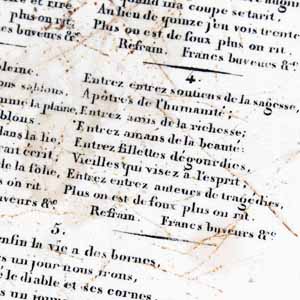 quand ma coupe se tarit,
Au lieu de quinze j'en vois trente
Plus on est de foux plus on rit.
Refrain. Francs buveurs &c
plus on rit.
buveurs &c
4.
Entrez entrez soutiens de la sagesse,
Apôtres de l'humanité;
Entrez amis de la richesse;
Entrez amans de la beauté:
Entrez fillettes dégourdies,
Vieilles qui visez à l'esprit;
Entrez entrez auteurs de tragédies,
Plus on est de foux plus on rit.
Refrain. Francs buveurs &c
pleine.
ous sablons.
la plaine,
blons.
dans la lie,
rait écrit;
de la folie,
on rit.
buveurs &c
5.
enfin la vie a des bornes,
un jour nous irons,
le diable et ses cornes
un jour